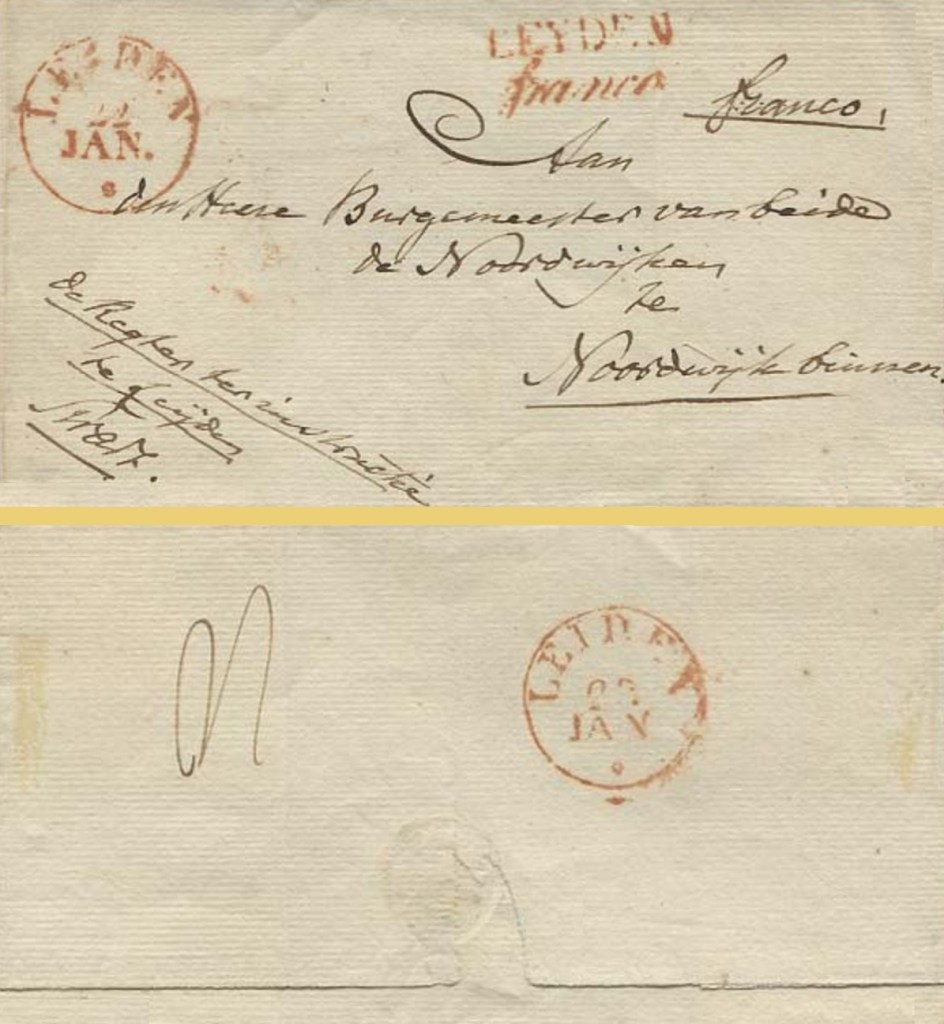 LEYDEN
franco
LEIDEN
22
JAN.
franco,
Aan
den Heere Burgemeester van beide
de Noordwijken
te
Noordwijk binnen.
de Regter ter instructie
te Leijden
LEIDEN
JAN